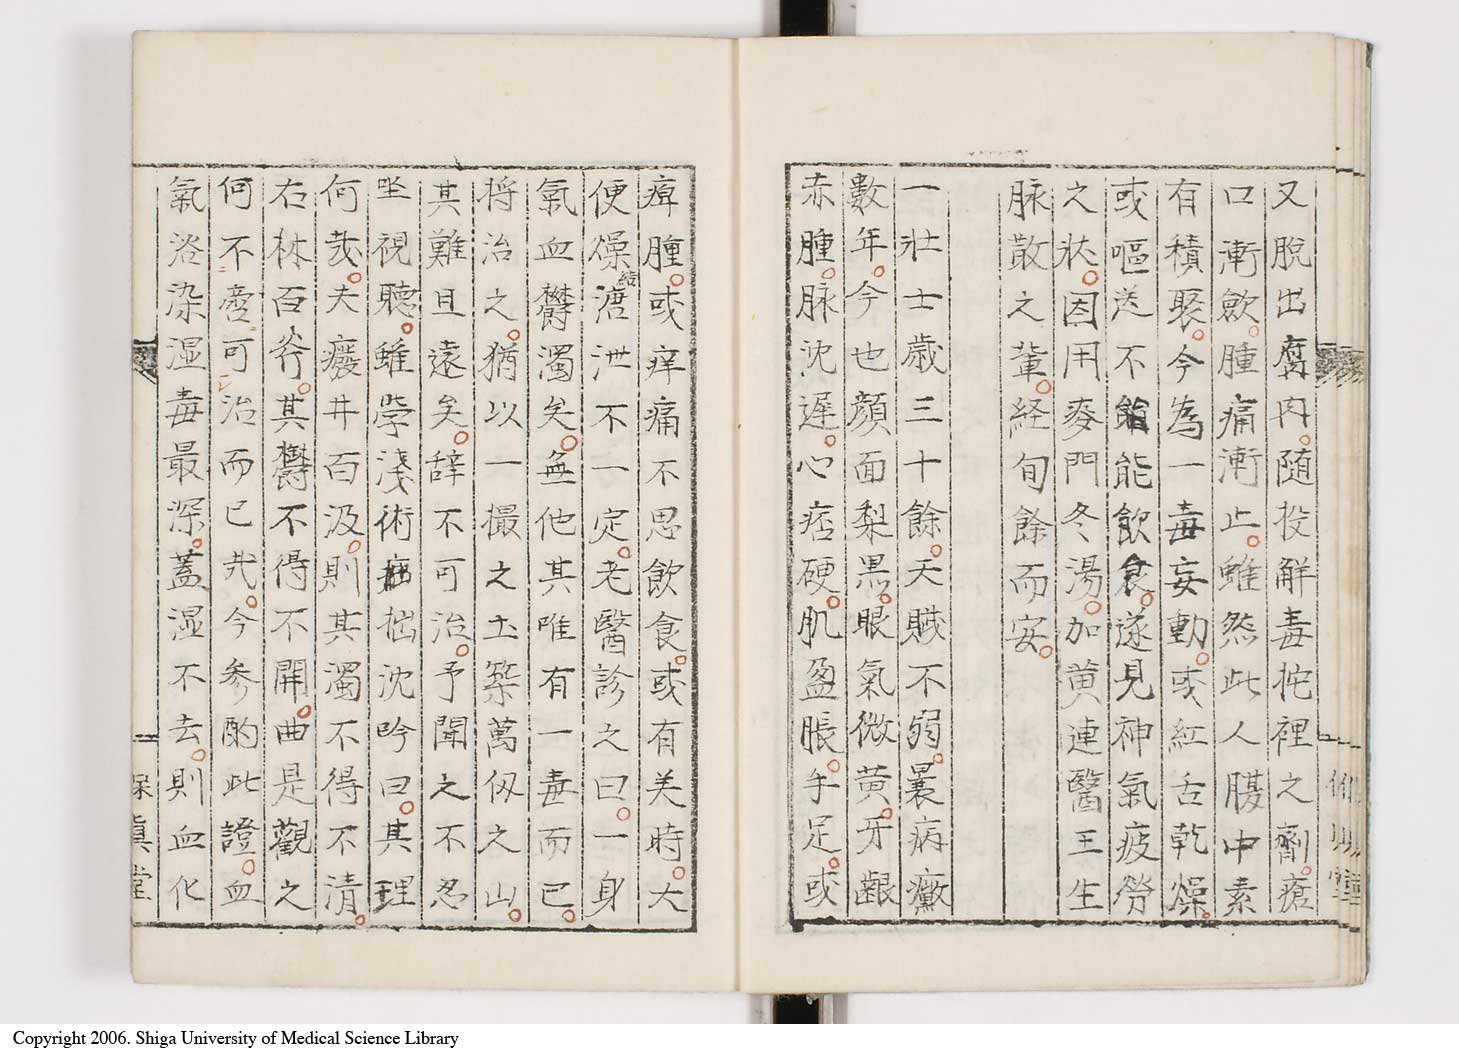 又脫出腐肉。随投解毒托裡之劑。瘡
口漸斂。腫痛漸止。雖然此人腸中素
有積聚。今為一毒妄動。或紅舌乾燥。
或嘔逆不能飲食。遂見神氣疲勞
之狀。因用麥門冬湯。加黄連醫王生
脉散之輩。経旬餘而安。
一壮士歳三十餘。天賎不弱。曩病癥
數年。今也顔面梨黒。眼氣微黄。牙齦
赤腫。脉沈遲。心痞硬。肌盈脹。手足。或
痺腫。或痒痛不思飲食。或有美時。大
便燥結溏泄不一定。老醫診之曰。一身
氣血欝濁矣。無他其唯有一毒而已。
将治之。猶以一撮之土築萬仭之山。
其難且遠矣。辞不可治。予聞之不忍
坐視聽。雖学淺術拙沈吟曰。其理
何哉。夫癈井百汲。則其濁不得不清。
右林百斧。其欝不得不開。曲是觀之
何不可治而已哉。今参酌此證。血
氣浴染湿毒最深。蓋湿不去。則血化
保眞堂